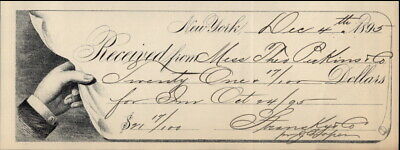 New York, Dec 4th 1895
Received from Miss Theo Perkins & Co
Twenty One & 17/100 Dollars
for Inv Oct 24/95
$21 17/100